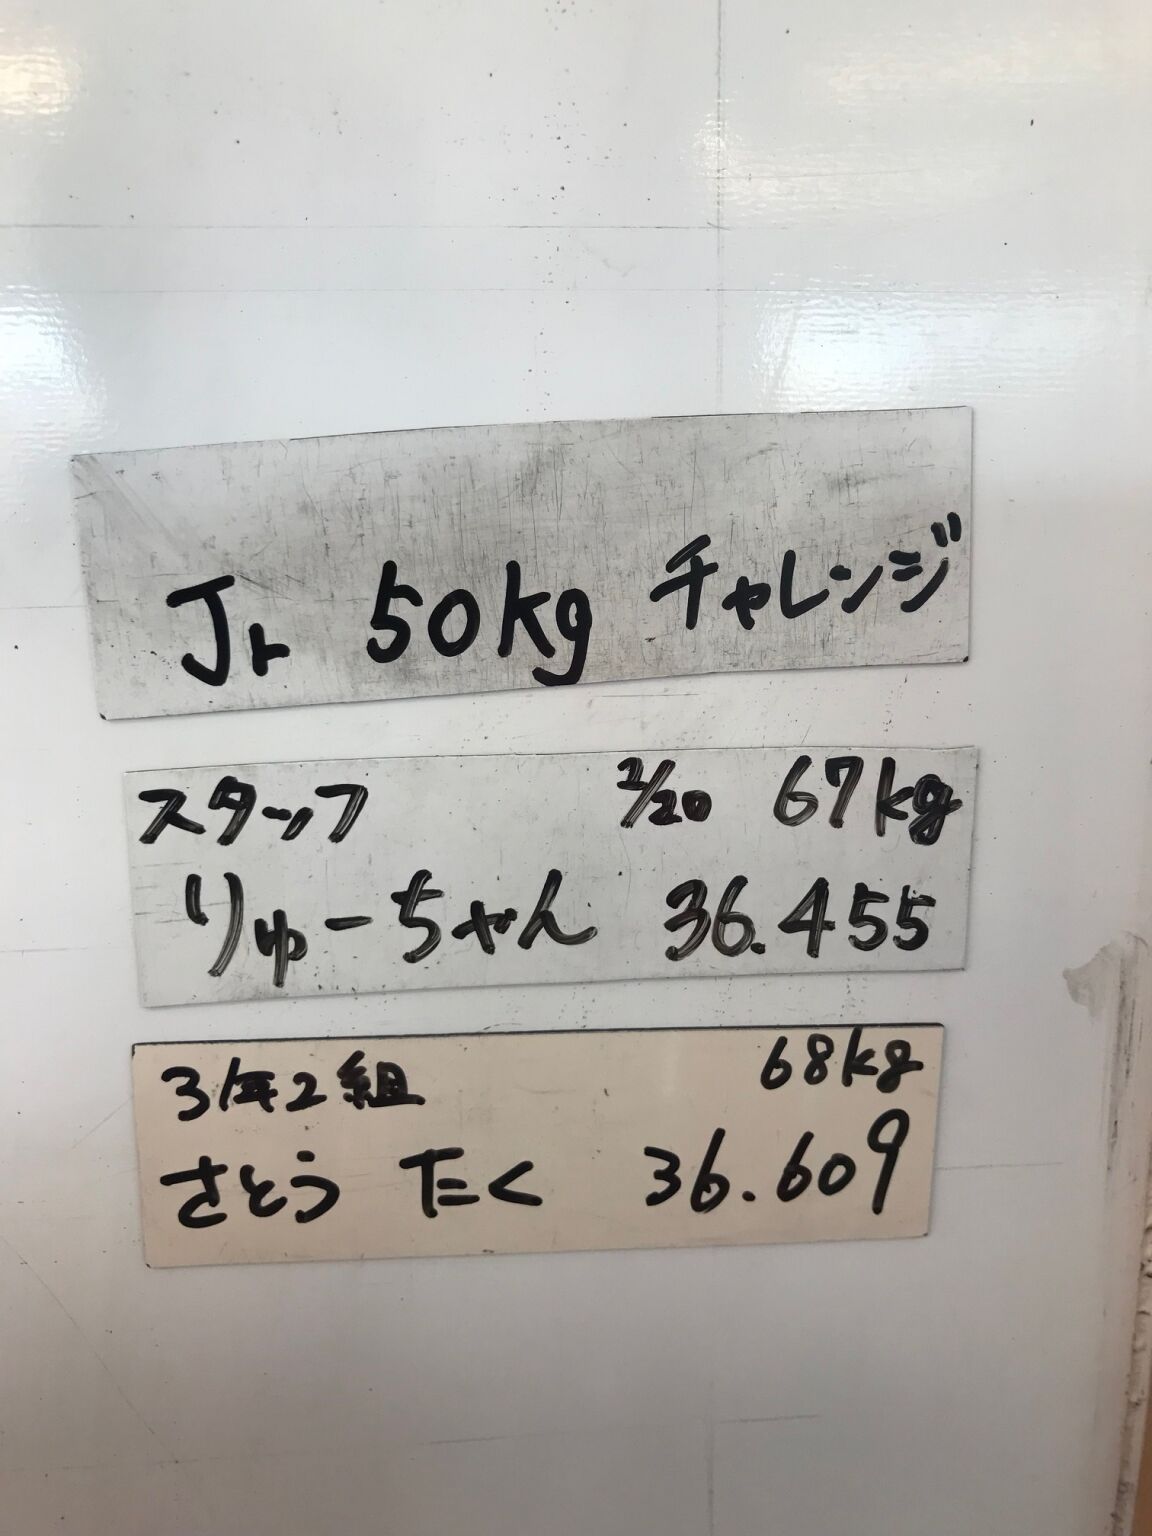 Jr 50kg チャレンジ
スタッフ 2/20 67kg
りゅーちゃん 36.455
3年2組 68kg
さとう たく 36.609